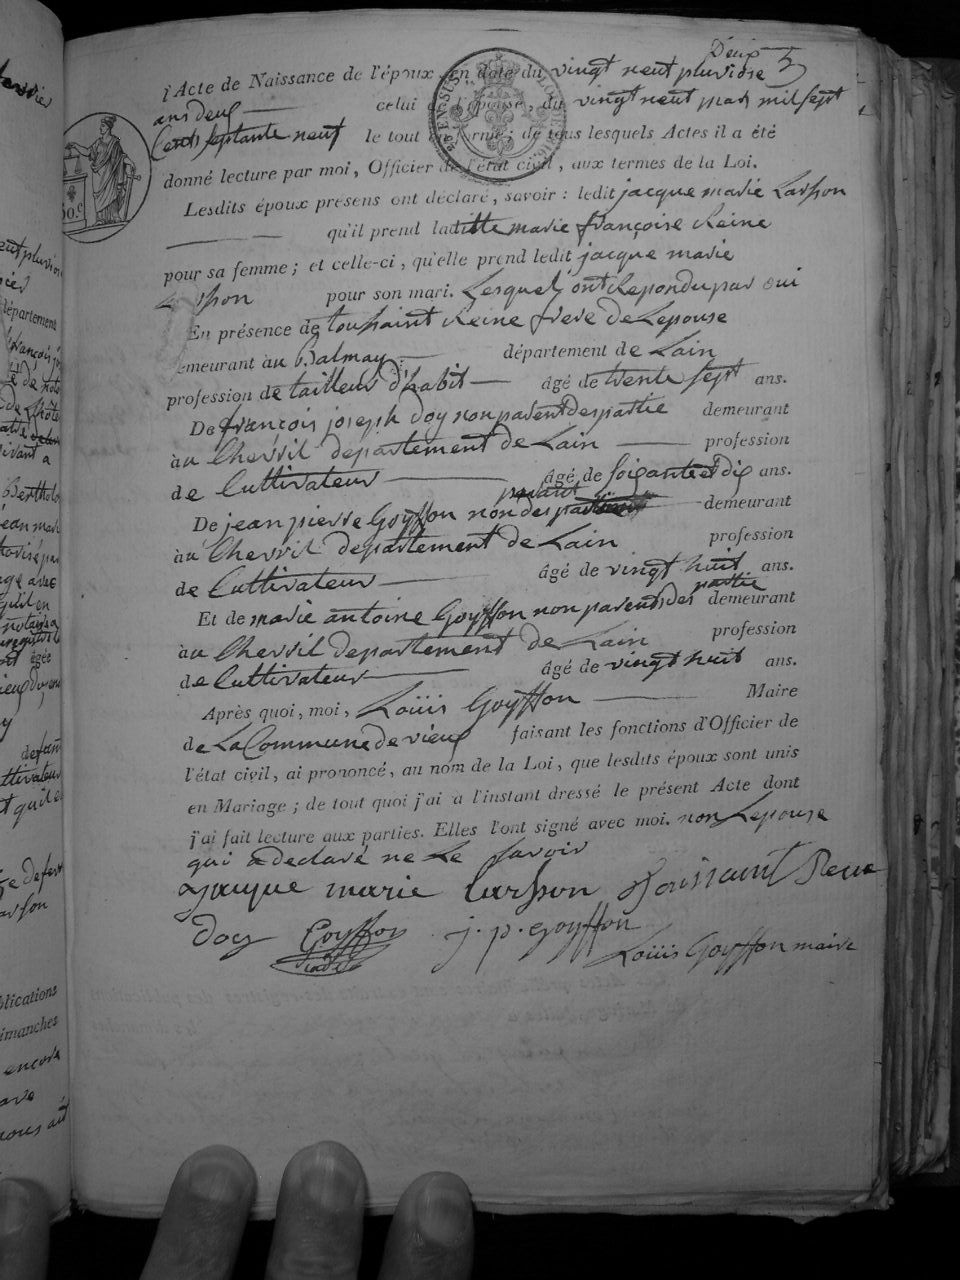 Deux
l'Acte de Naissance de l'époux, en date du vingt neuf pluviose
ans deux celui de l'épouse, du vingt neuf mars mil sept
Cents septante neuf le tout en forme; de tous lesquels Actes il a été
donné lecture par moi, Officier de l'état civil, aux termes de la Loi.
Lesdits époux présens ont déclaré, savoir: ledit jacque marie Larsson
qu'il prend laditte marie françoise Reine
pour sa femme; et celle-ci, qu'elle prend ledit jacque marie
Larsson pour son mari. Lesquels ont Repondu par oui
En présence de toussaint Reine frere de Lepouse
demeurant au Balmay département de Lain
profession de tailleur d'habit âgé de trente sept ans.
De françois joseph doy non parent des partie demeurant
à au Chevril departement de Lain profession
de Cultivateur âgé de soixante et dix ans.
De jean pierre Goyffon non parent des demeurant
à au Chevril departement de Lain profession
de Cultivateur âgé de vingt huit ans.
Et de marie antoine Goyffon non parents des partie demeurant
à au Chevril departement de Lain profession
de Cultivateur âgé de vingt huit ans.
Après quoi, moi, Loüis Goyffon Maire
de La Commune de vieux faisant les fonctions d'Officier de
l'état civil, ai prononcé, au nom de la Loi, que lesdits époux sont unis
en Mariage; de tout quoi j'ai à l'instant dressé le présent Acte dont
j'ai fait lecture aux parties. Elles l'ont signé avec moi. non Lepouse
qui a declaré ne Le savoir
jacque marie larsson Toussaint Rene
doy Goyffon j. p. goyffon
Loüis Goyffon maire